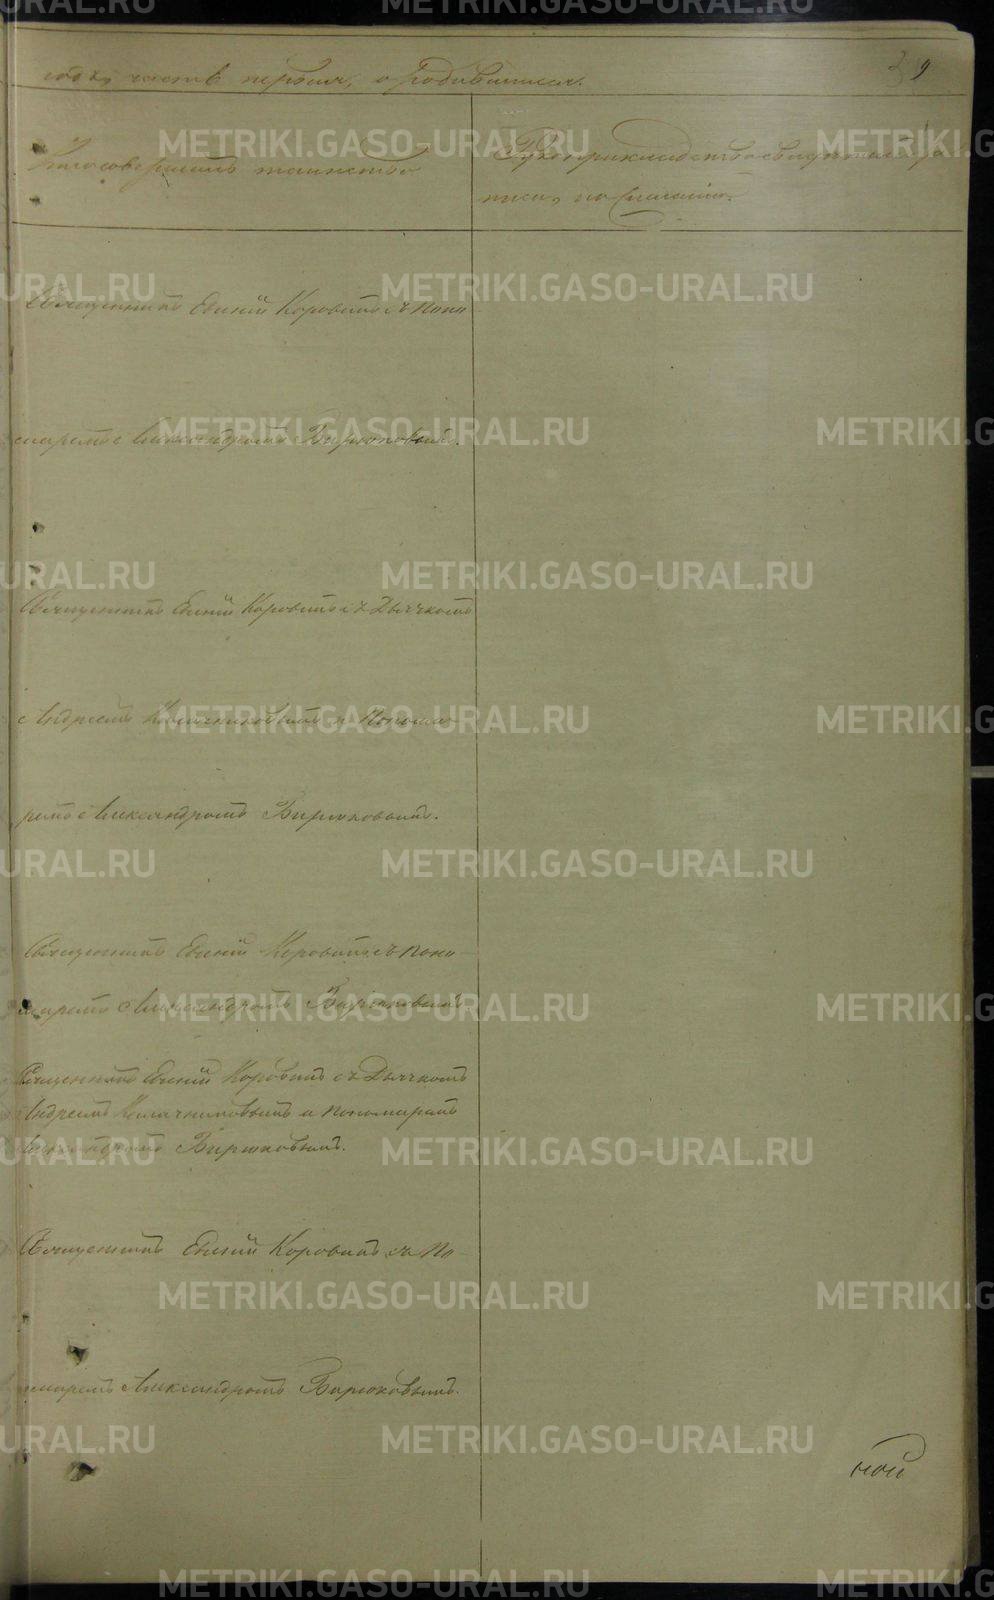 года, часть первая, о родившихся.
9
Кто совершалъ таинство
Рукоприкладство свидетелей за-
писи, по желанію.
Священникъ Евгній Коровинъ съ Поно-
маремъ Александромъ Бирюковымъ.
Священникъ Евгній Коровинъ съ Дьячкомъ
Андреемъ Калачниковымъ и Понома-
ремъ Александромъ Бирюковымъ.
Священникъ Евгній Коровинъ съ Поно-
маремъ Александромъ Бирюковымъ
Священникъ Евгній Коровинъ съ Дьячкомъ
Андреемъ Калачниковымъ и пономаремъ
Александромъ Бирюковымъ.
Священникъ Евгній Коровинъ съ По-
номаремъ Александромъ Бирюковымъ.
ной
METRIKI.GASO-URAL.RU